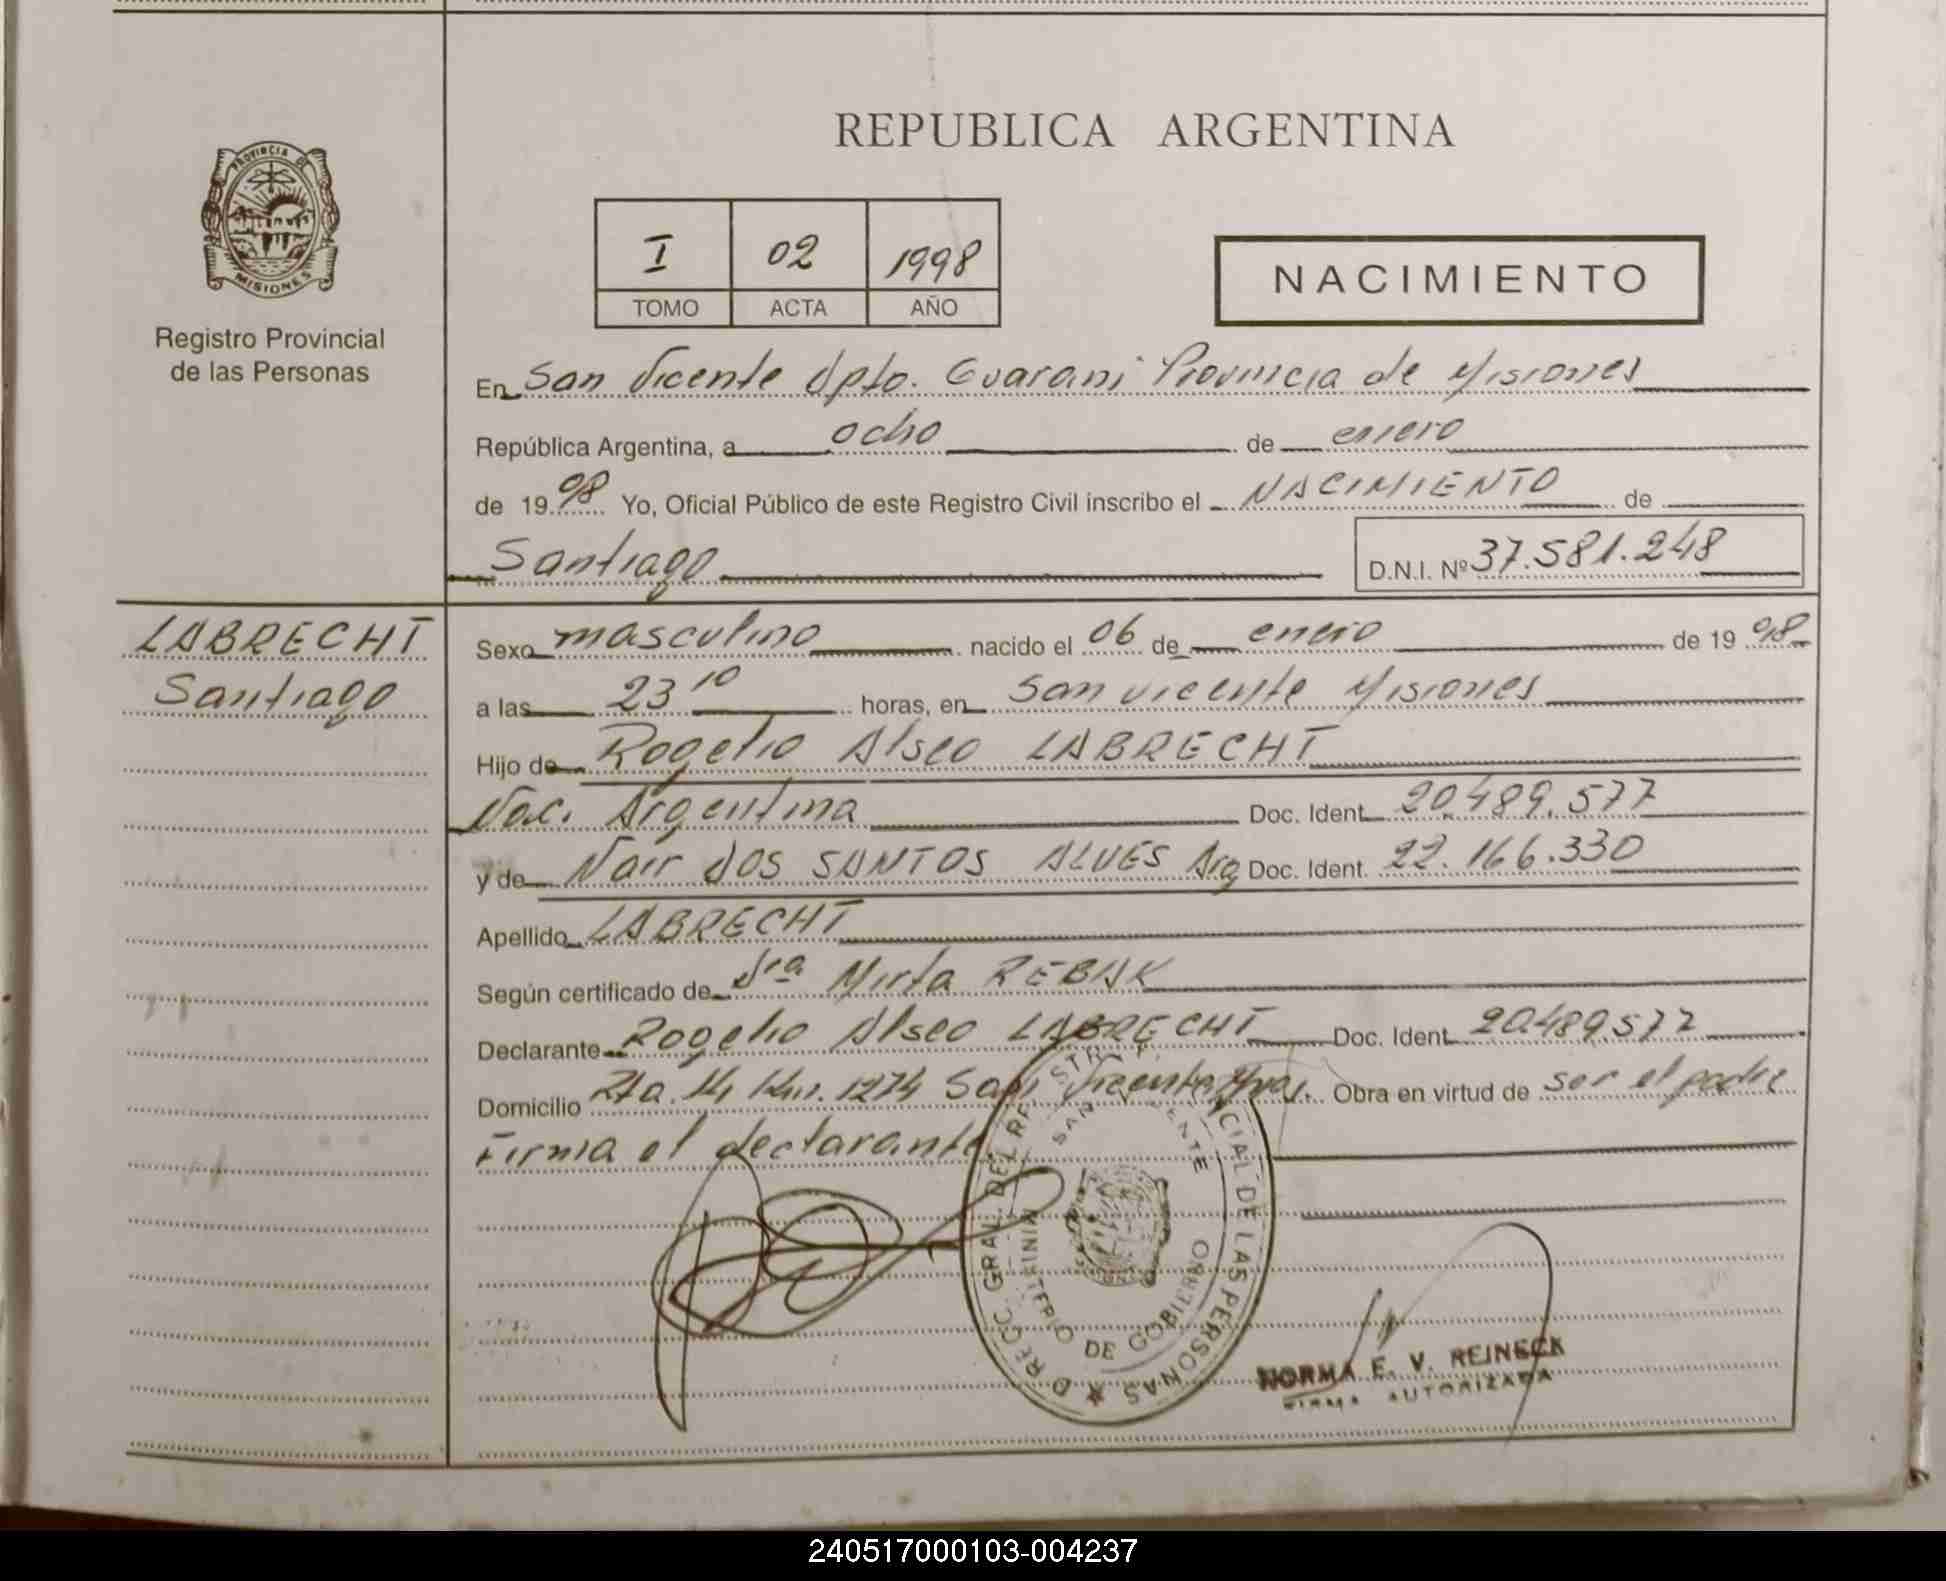 REPUBLICA ARGENTINA
PROVINCIA DE MISIONES
Registro Provincial
de las Personas
I 02 1998
TOMO ACTA AÑO
NACIMIENTO
En San Vicente Dpto. Guarani Provincia de Misiones
República Argentina, a ocho de enero
de 1998 Yo, Oficial Público de este Registro Civil inscribo el NACIMIENTO de
Santiago D.N.I. Nº 37.581.248
LABRECHT
Santiago
Sexo masculino nacido el 06 de enero de 1998
a las 23 10 horas, en San Vicente Misiones
Hijo de Rogelio Alseo LABRECHT
Nac. Argentina Doc. Ident. 20.489.577
y de Nair DOS SANTOS ALVES Arg Doc. Ident. 22.166.330
Apellido LABRECHT
Según certificado de Mirta REBAK
Declarante Rogelio Alseo LABRECHT Doc. Ident. 20.489.577
Domicilio Rta. 14 Km. 1274 San Vicente Mnes. Obra en virtud de ser el padre
Firma el declarante
DIRECC. GRAL. DEL REGISTRO PROVINCIAL DE LAS PERSONAS
SAN VICENTE
MINISTERIO DE GOBIERNO
NORMA E. V. REINECK
FIRMA AUTORIZADA
240517000103-004237